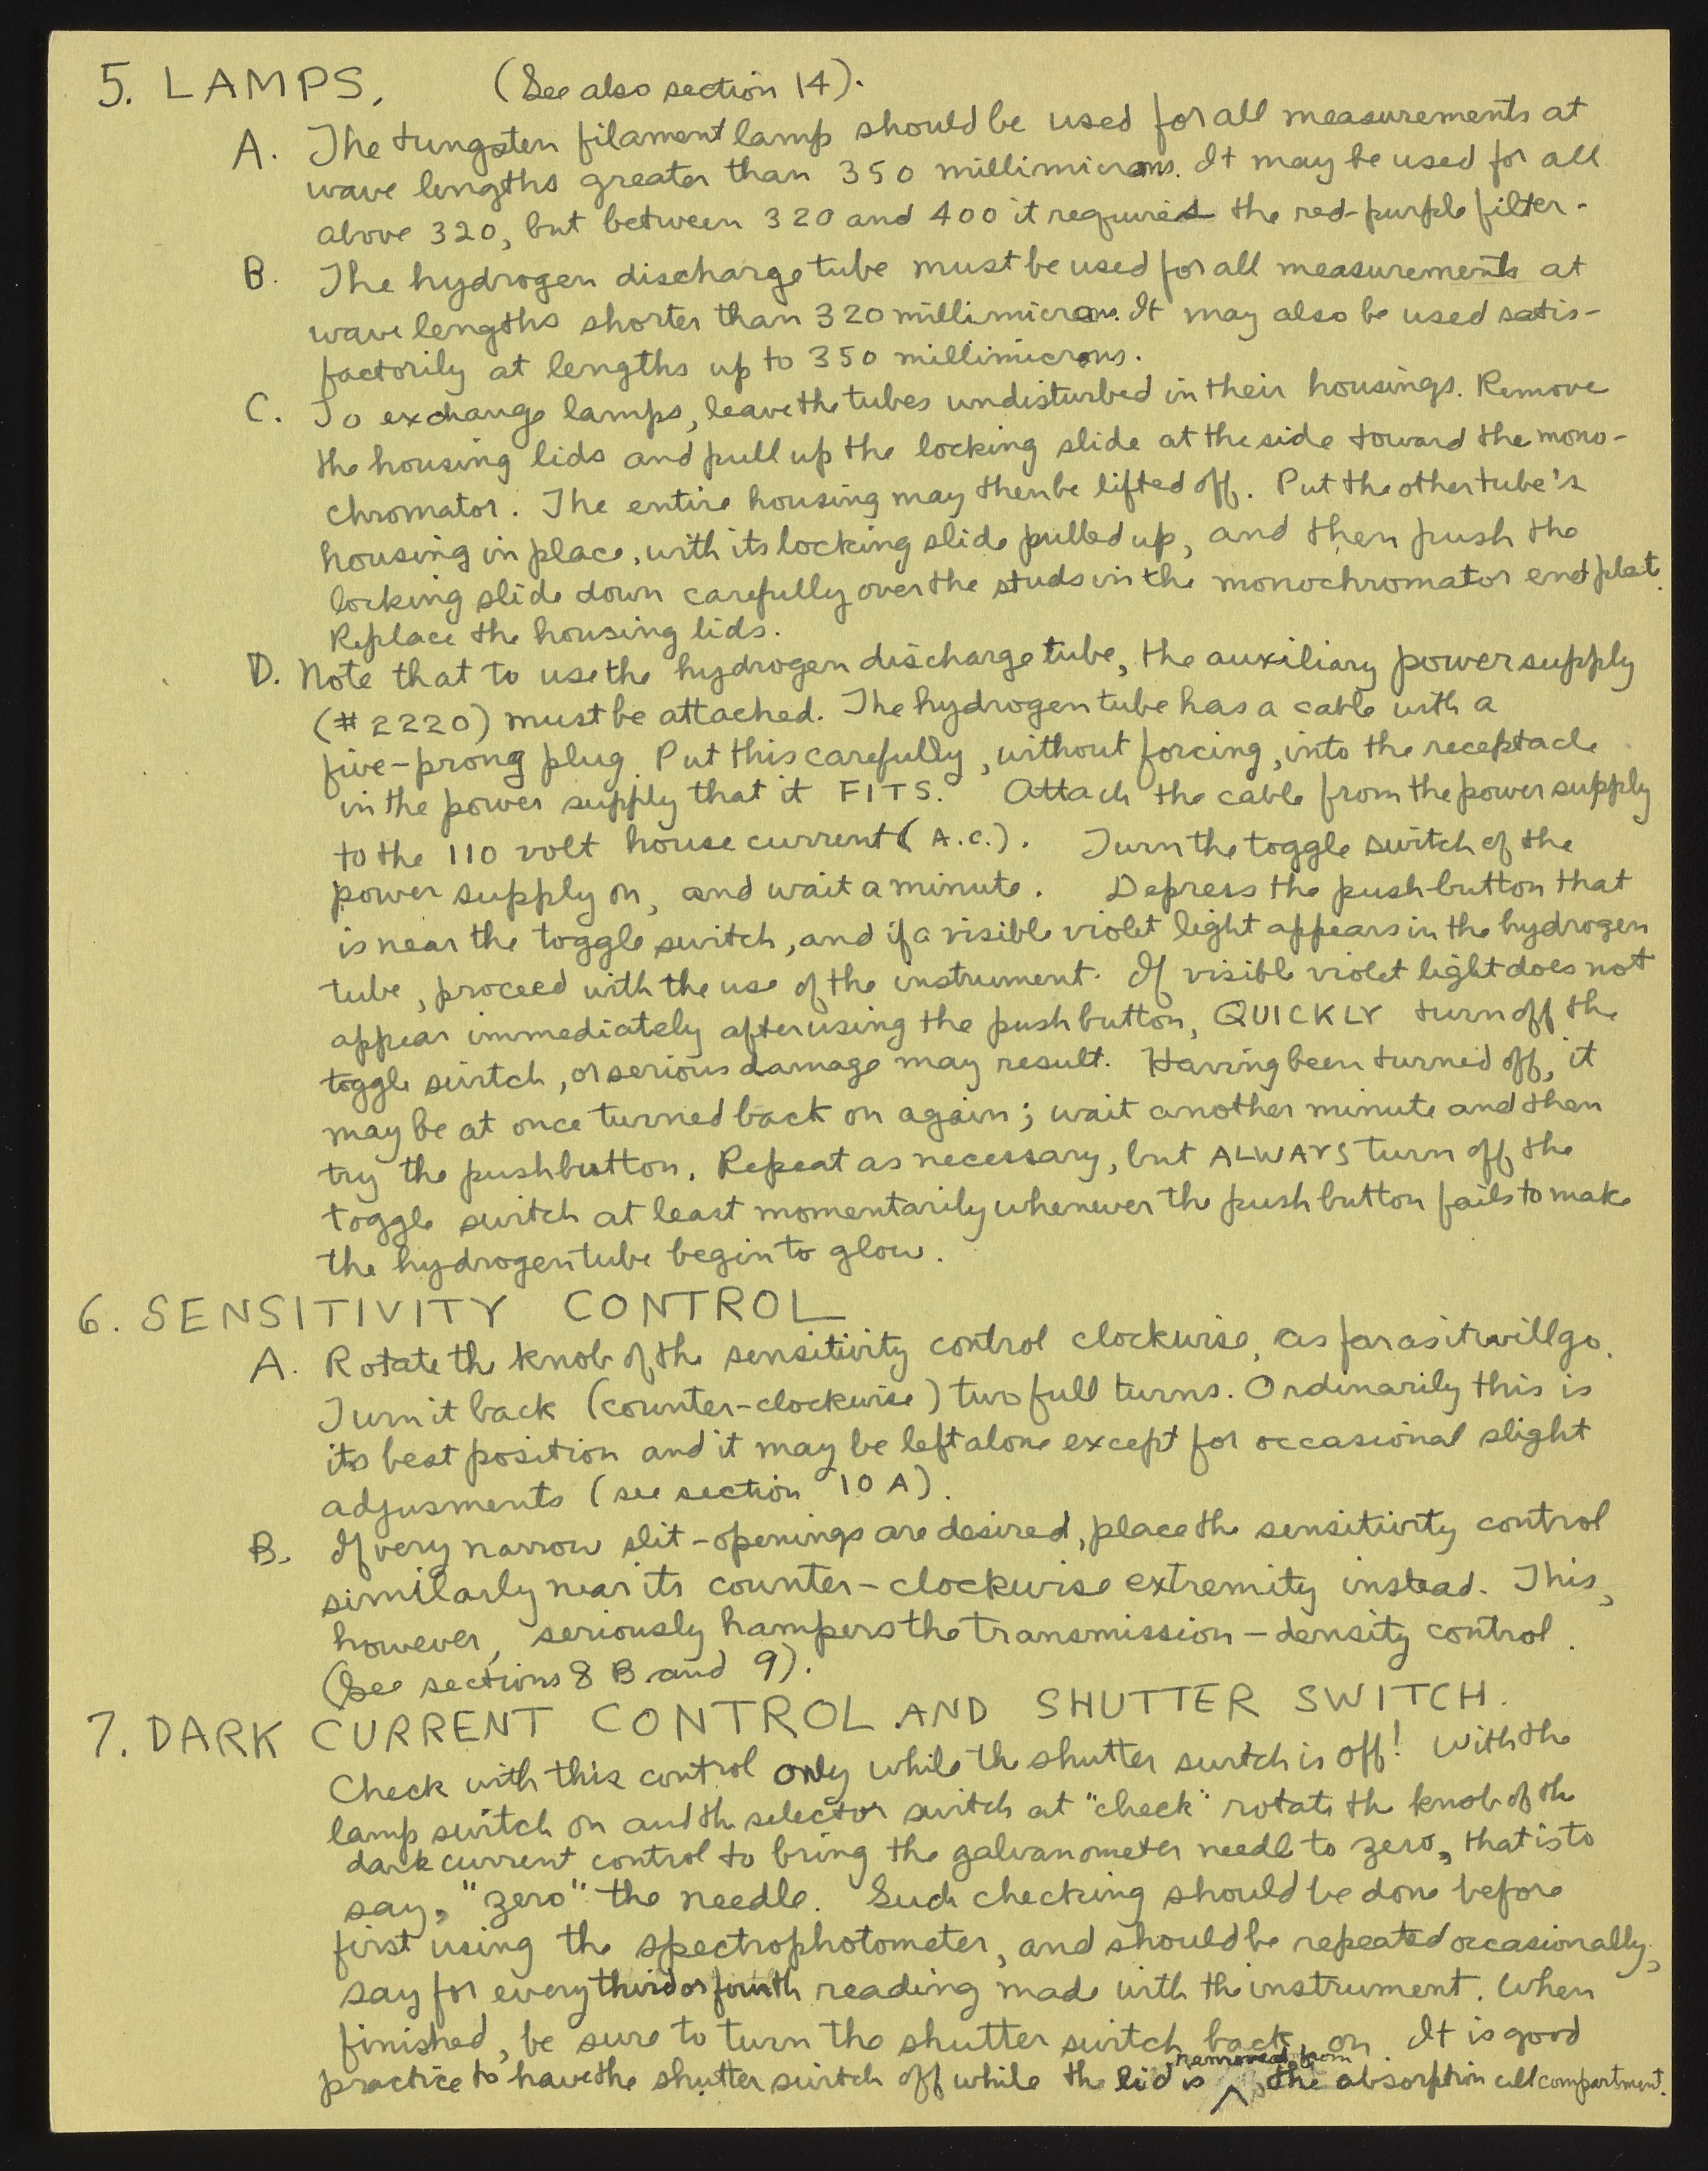 5. LAMPS. (See also section 14).
A. The tungsten filament lamp should be used for all measurements at
wave lengths greater than 350 millimicrons. It may be used for all
above 320, but between 320 and 400 it requires the red-purple filter.
B. The hydrogen discharge tube must be used for all measurements at
wave lengths shorter than 320 millimicrons. It may also be used satis-
factorily at lengths up to 350 millimicrons.
C. To exchange lamps, leave the tubes undisturbed in their housings. Remove
the housing lids and pull up the locking slide at the side toward the mono-
chromator. The entire housing may then be lifted off. Put the other tube's
housing in place, with its locking slide pulled up, and then push the
locking slide down carefully over the studs in the monochromator end plat.
Replace the housing lids.
D. Note that to use the hydrogen discharge tube, the auxiliary power supply
(#2220) must be attached. The hydrogen tube has a cable with a
five-prong plug. Put this carefully, without forcing, into the receptacle
in the power supply that it FITS. Attach the cable from the power supply
to the 110 volt house current (A.C.). Turn the toggle switch of the
power supply on, and wait a minute. Depress the push-button that
is near the toggle switch, and if a visible violet light appears in the hydrogen
tube, proceed with the use of the instrument. If visible violet light does not
appear immediately after using the push button, QUICKLY turn off the
toggle switch, or serious damage may result. Having been turned off, it
may be at once turned back on again; wait another minute and then
try the pushbutton. Repeat as necessary, but ALWAYS turn off the
toggle switch at least momentarily whenever the push button fails to make
the hydrogen tube begin to glow.
6. SENSITIVITY CONTROL
A. Rotate the knob of the sensitivity control clockwise, as far as it will go.
Turn it back (counter-clockwise) two full turns. Ordinarily this is
its best position and it may be left alone except for occasional slight
adjusments (see section 10 A).
B. If very narrow slit-openings are desired, place the sensitivity control
similarly near its counter-clockwise extremity instead. This,
however, seriously hampers the transmission-density control.
(See sections 8 B and 9).
7. DARK CURRENT CONTROL AND SHUTTER SWITCH.
Check with this control only while the shutter switch is off! With the
lamp switch on and the selector switch at "check" rotate the knob of the
dark current control to bring the galvanometer needle to zero, that is to
say, "zero" the needle. Such checking should be done before
first using the spectrophotometer, and should be repeated occasionally,
say for every third or fourth reading made with the instrument. When
finished, be sure to turn the shutter switch back on. It is good
removed from
practice to have the shutter switch off while the lid is ^ the absorption cell compartment.